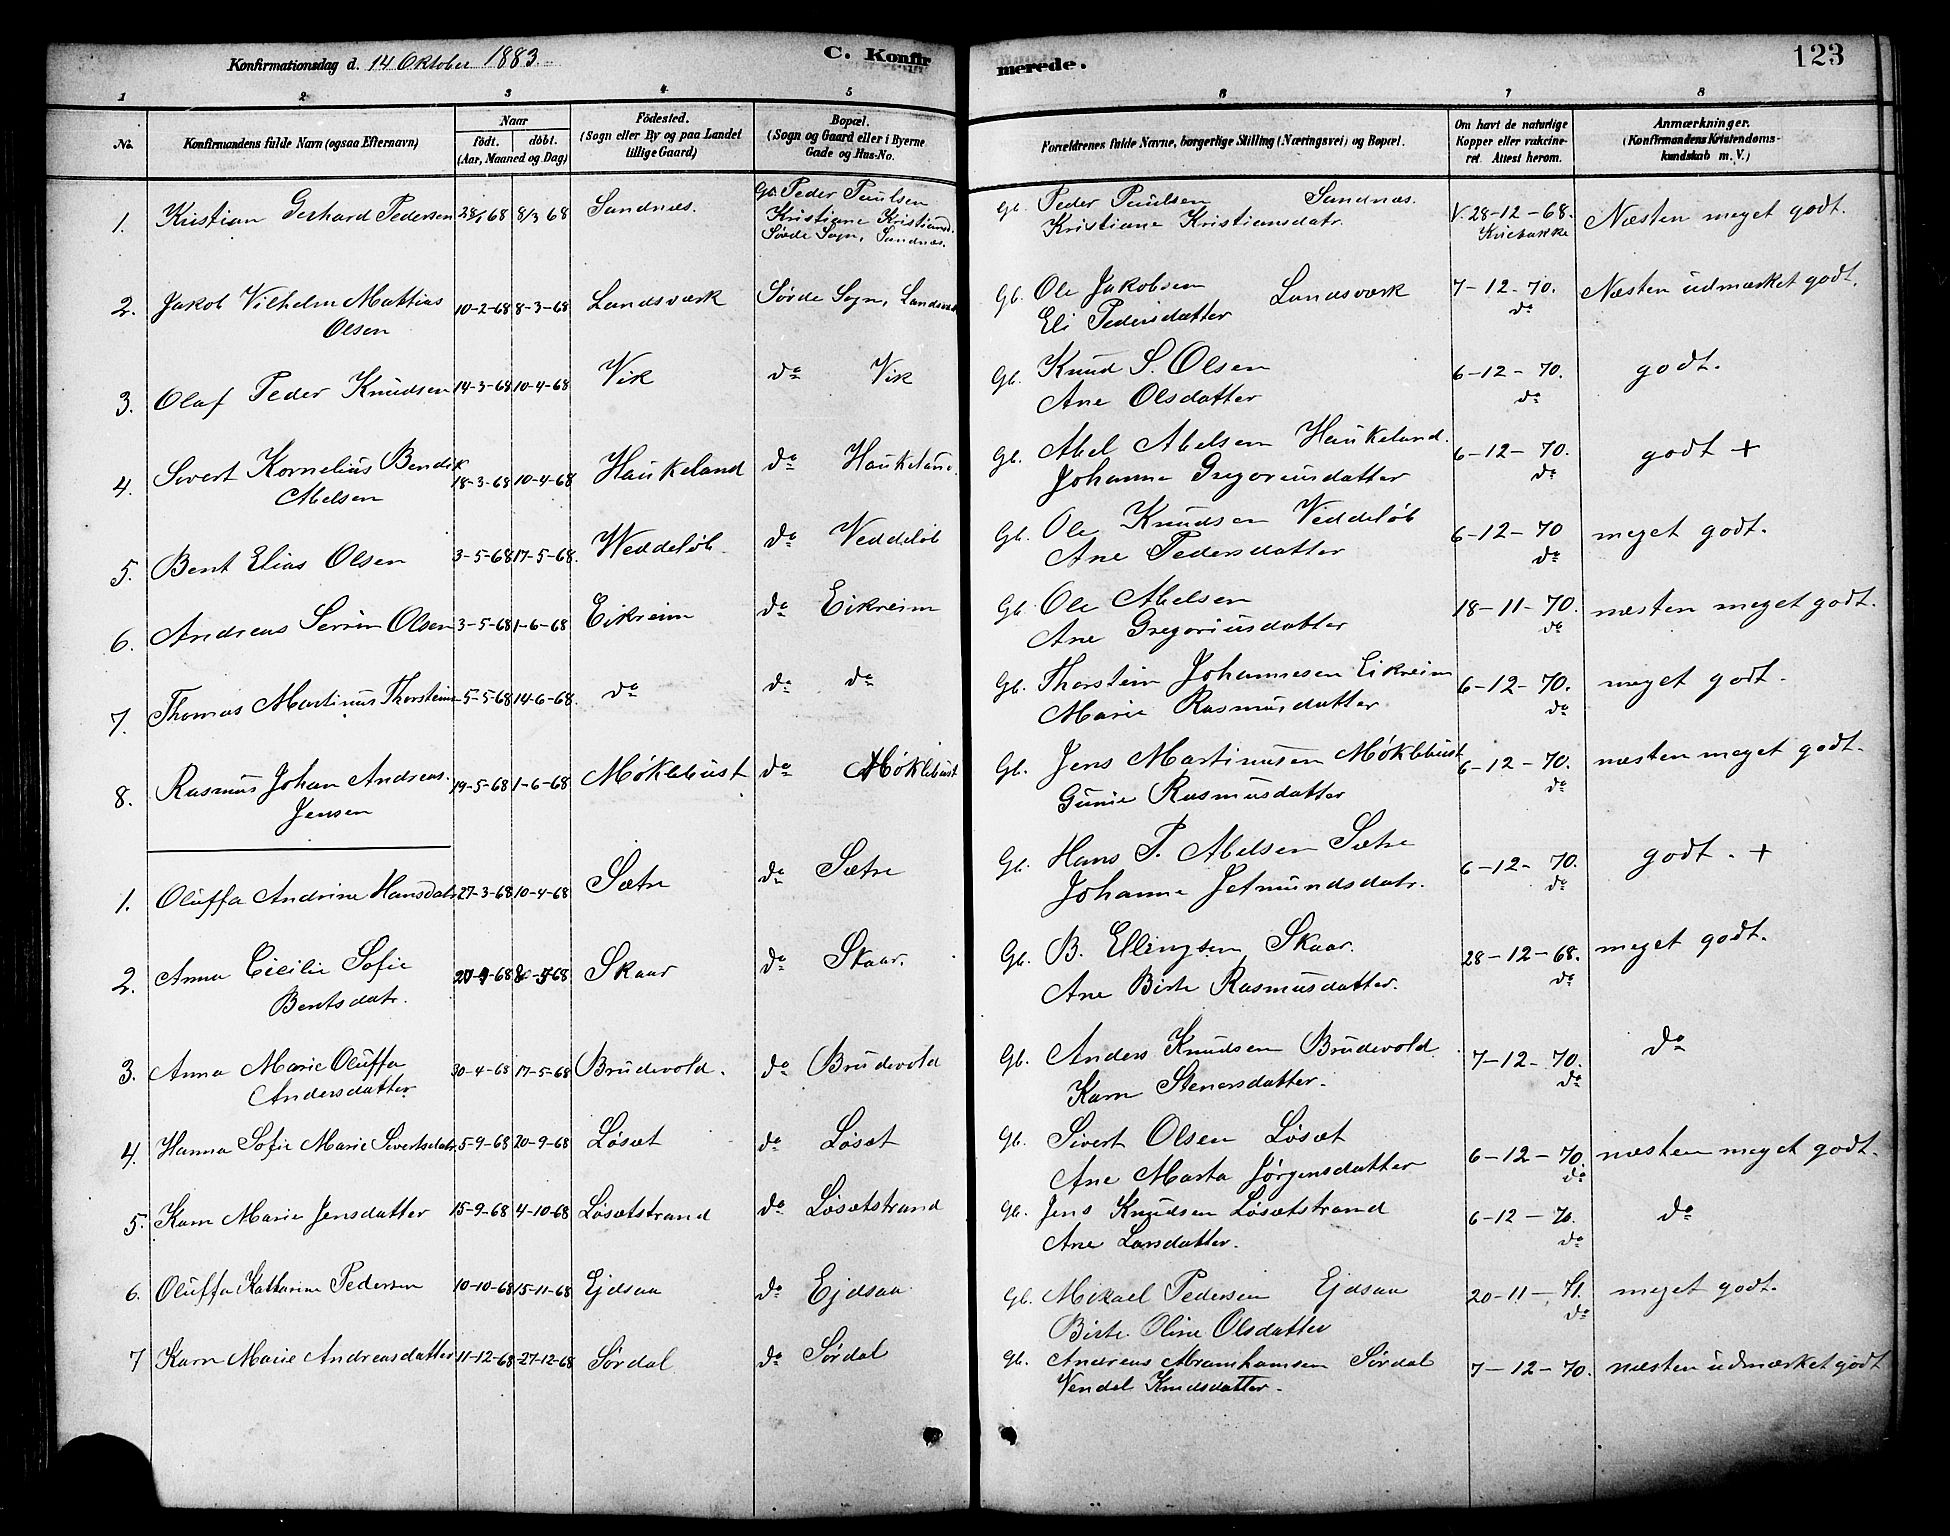 Konfirmationsdag d. 14 Oktober 1883. C. Konfirmerede. 123
1 2 3 4 5 6 7 8
No. Konfirmandens fulde Navn (ogsaa Efternavn) Naar født. døbt. (Aar, Maaned og Dag) Fødested. (Sogn eller By og paa Landet tillige Gaard) Bopæl. (Sogn og Gaard eller i Byerne Gade og Hus-No. Forældrenes fulde Navne, borgerlige Stilling (Næringsvei) og Bopæl. Om havt de naturlige Kopper eller vakcineret. Attest herom. Anmærkninger. (Konfirmandens Kristendomskundskab m. V.)
1. Kristian Gerhard Pedersen 8/3 68 Sandnæs. Gb. Peder Paulsen Gb. Peder Paulsen Sandnæs. V. 28-12-68. Næsten meget godt.
Kristiane Kristiansd. Kristiane Kristiansdatr.
Sørde Sogn, Sandnæs.
2. Jakob Vilhelm Mattias 10-2-68 8-3-68 Landsværk Sørde Sogn, Landsværk Gb. Ole Jakobsen Landsværk 7-12-70. Næsten udmærket godt.
Olsen Eli Pedersdatter do
3. Olaf Peder Knudsen 14-3-68 10-4-68 Vik do Vik Gb. Knud S. Olsen 6-12-70. godt.
Ane Olsdatter do
4. Sivert Kornelius Bendik 18-3-68 10-4-68 Haukeland do Haukeland. Gb. Abel Abelsen Haukeland. 6-12-70. godt +
Abelsen Johanne Gregoriusdatter do
5. Bent Elias Olsen 3-5-68 17-5-68. Weddeløb. do Veddeløb Gb. Ole Knudsen Veddeløb 6-12-70 meget godt.
Ane Pedersdatter do
6. Andreas Serrin Olsen 3-5-68 1-6-68 Eikreim do Eikreim Gb. Ole Abelsen 18-11-70. næsten meget godt.
Ane Gregoriusdatter do
7. Thomas Martinus Thorsteins 5-5-68 14-6-68. do do do Gb. Thorstein Johannesen Eikreim 6-12-70. meget godt.
Marie Rasmusdatter do
8. Rasmus Johan Andreas. 19-5-68 1-6-68 Møklebust do Møklebust Gb. Jens Martinusen Møklebust 6-12-70. næsten meget godt.
Jensen Gunie Rasmusdatter do
1. Oluffa Andrine Hansdatr 27-3-68 10-4-68 Sætre do Sætre Gb. Hans P. Abelsen Sætre 6-12-70. godt. +
Johanne Jetmundsdatr. do
2. Anna Cicilie Sofie Skaar do Skaar. Gb. B. Ellingsen Skaar. 28-12-68. meget godt.
Bentsdatr. Ane Birte Rasmusdatter. do
3. Anna Marie Oluffa 30-4-68 17-5-68 Brudevold. do Brudevold Gb. Anders Knudsen Brudevold. 7-12-70. do
Andersdatter Karn Stenersdatter. do
4. Hanna Sofie Marie Sivertsdatr. 5-9-68 20-9-68 Løsæt do Løsæt Gb. Sivert Olsen Løsæt 6-12-70. næsten meget godt.
Ane Marta Jørgensdatter do
5. Karn Marie Jensdatter 15-9-68 4-10-68 Løsætstrand do Løsætstrand Gb. Jens Knudsen Løsætstrand 6-12-70. do
Ane Larsdatter. do
6. Oluffa Katharine Pedersen 10-10-68 15-11-68 Ejdsaa do Ejdsaa Gb. Mikael Pedersen Ejdsaa 20-11-71. meget godt.
Birte. Oline Olsdatter do
7 Karn Marie Andreasdatter 11-12-68 27-12-68 Sørdal do Sørdal Gb. Andreas Abramhamsen Sørdal 7-12-70. næsten udmærket godt
Vendel Knudsdatter.